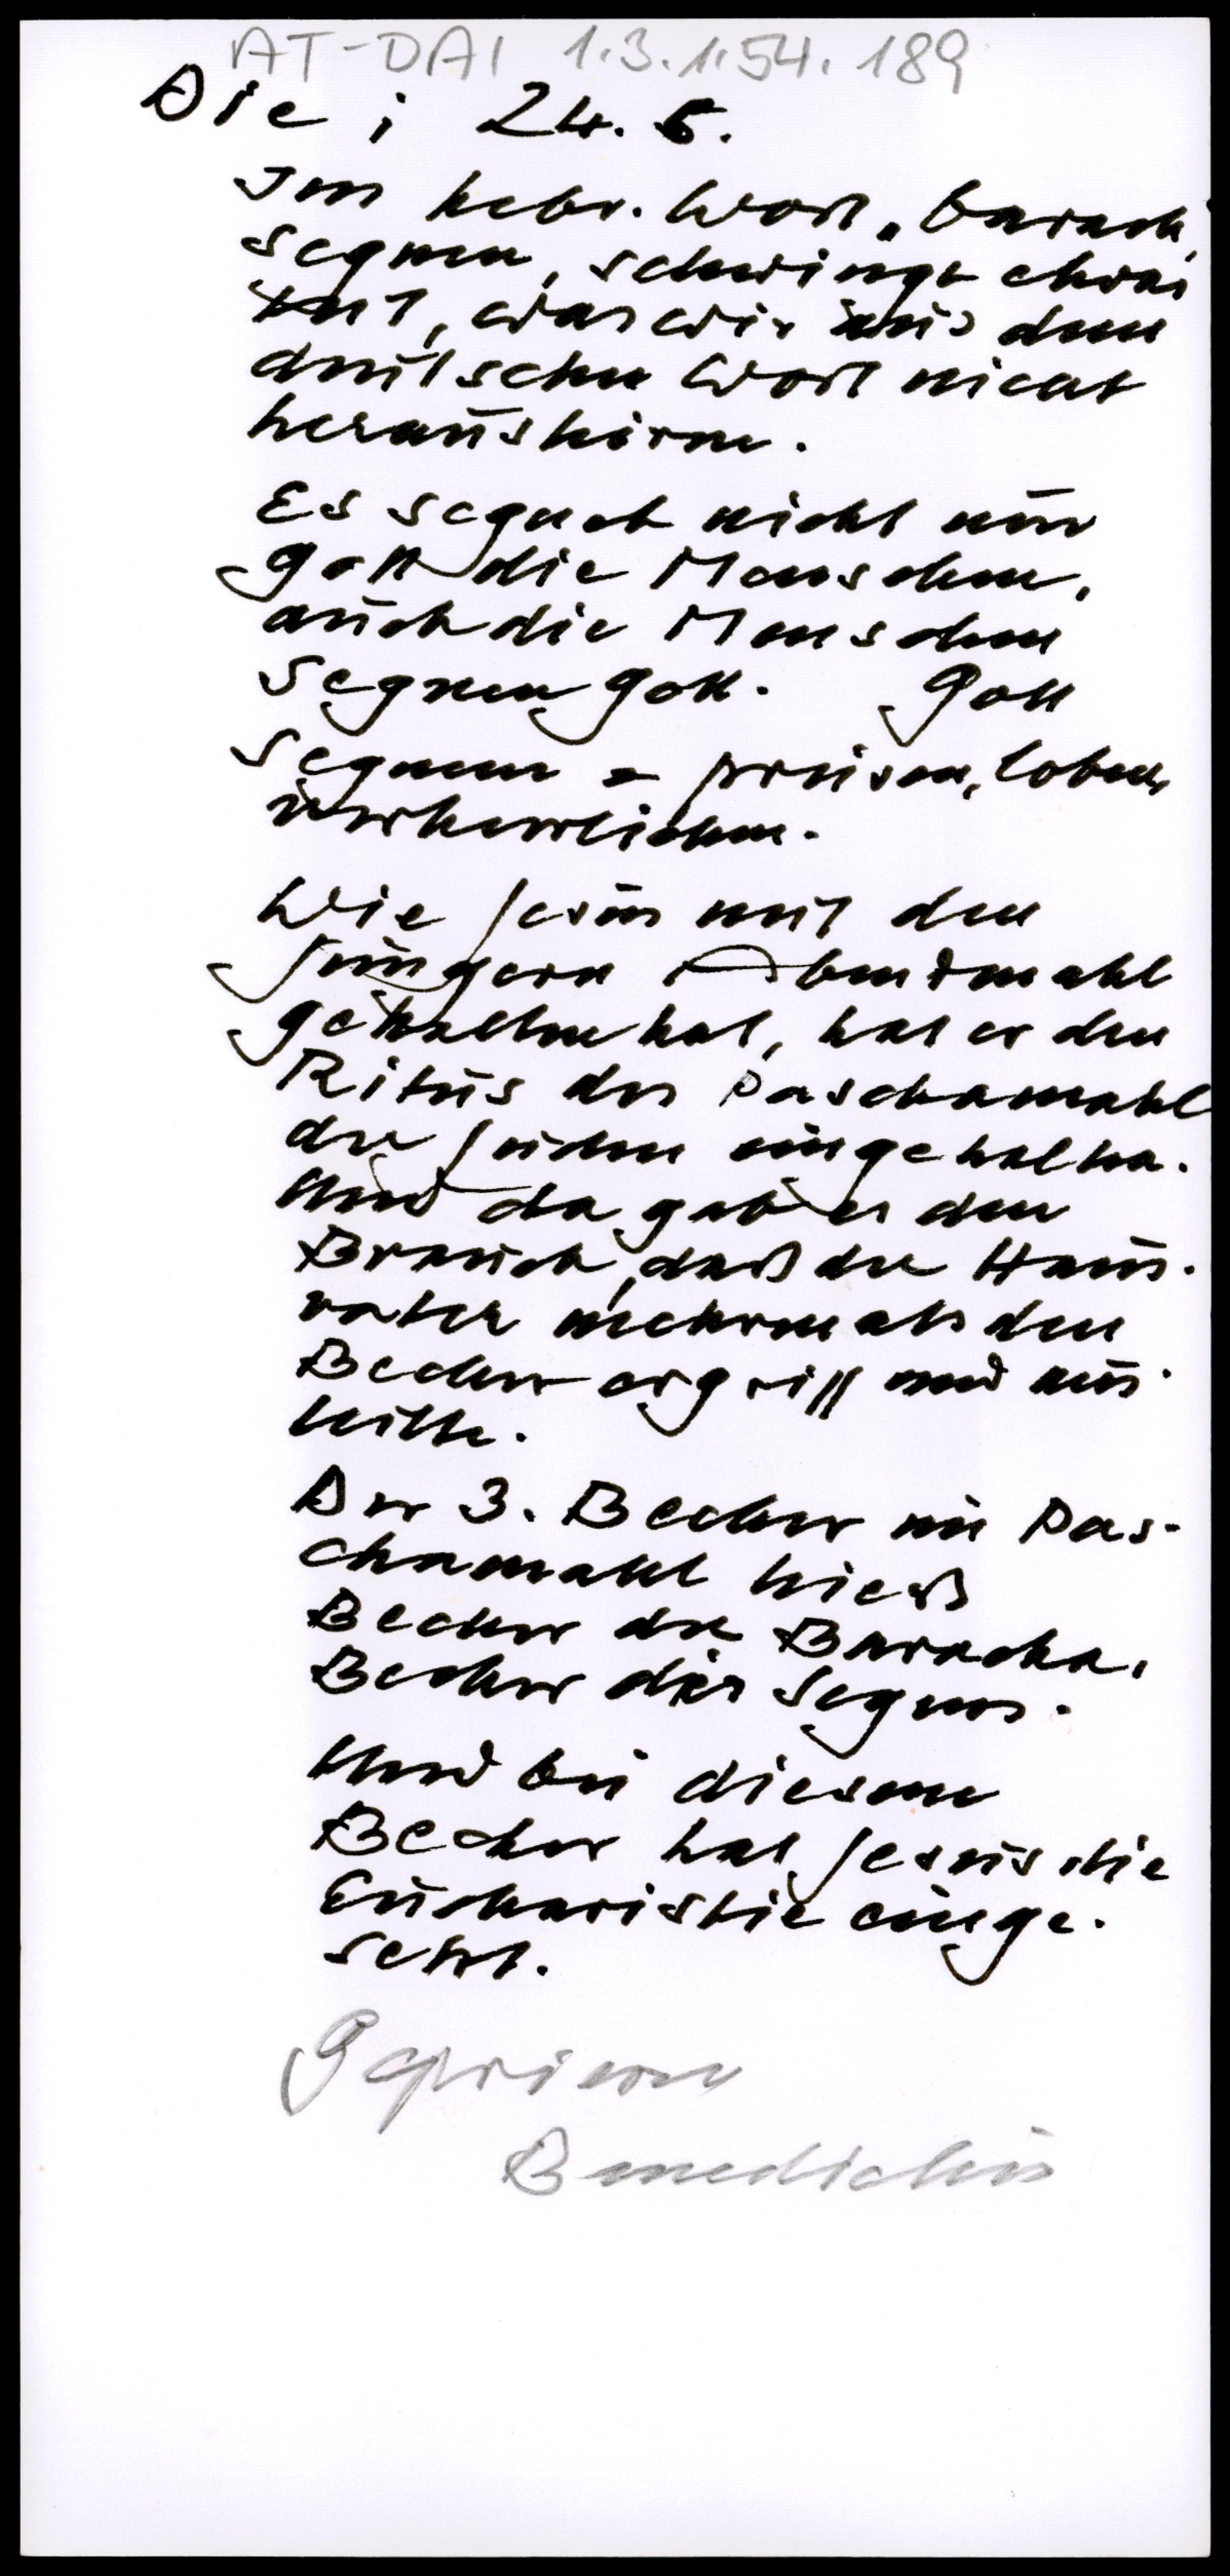 AT-DAI 1.3.1.54.189
Die, 24. 5.
Im hebr. Wort "barach"
segnen, schwingt etwas
mit, was wir aus dem
deutschen Wort nicht
heraushören.
Es segnet nicht nur
Gott die Menschen,
auch die Menschen
segnen Gott. Gott
segnen = preisen, loben,
verherrlichen.
Wie Jesus mit den
Jüngern Abendmahl
gehalten hat, hat er den
Ritus des Paschamahl
der Juden eingehalten.
Und da gab es den
Brauch, daß der Haus-
vater mehrmals den
Becher ergriff und aus-
teilte.
Der 3. Becher im Pas-
chamahl hieß
Becher der Baracha,
Becher des Segens.
Und bei diesem
Becher hat Jesus die
Eucharistie einge-
setzt.
Gepriesen
Benedictus